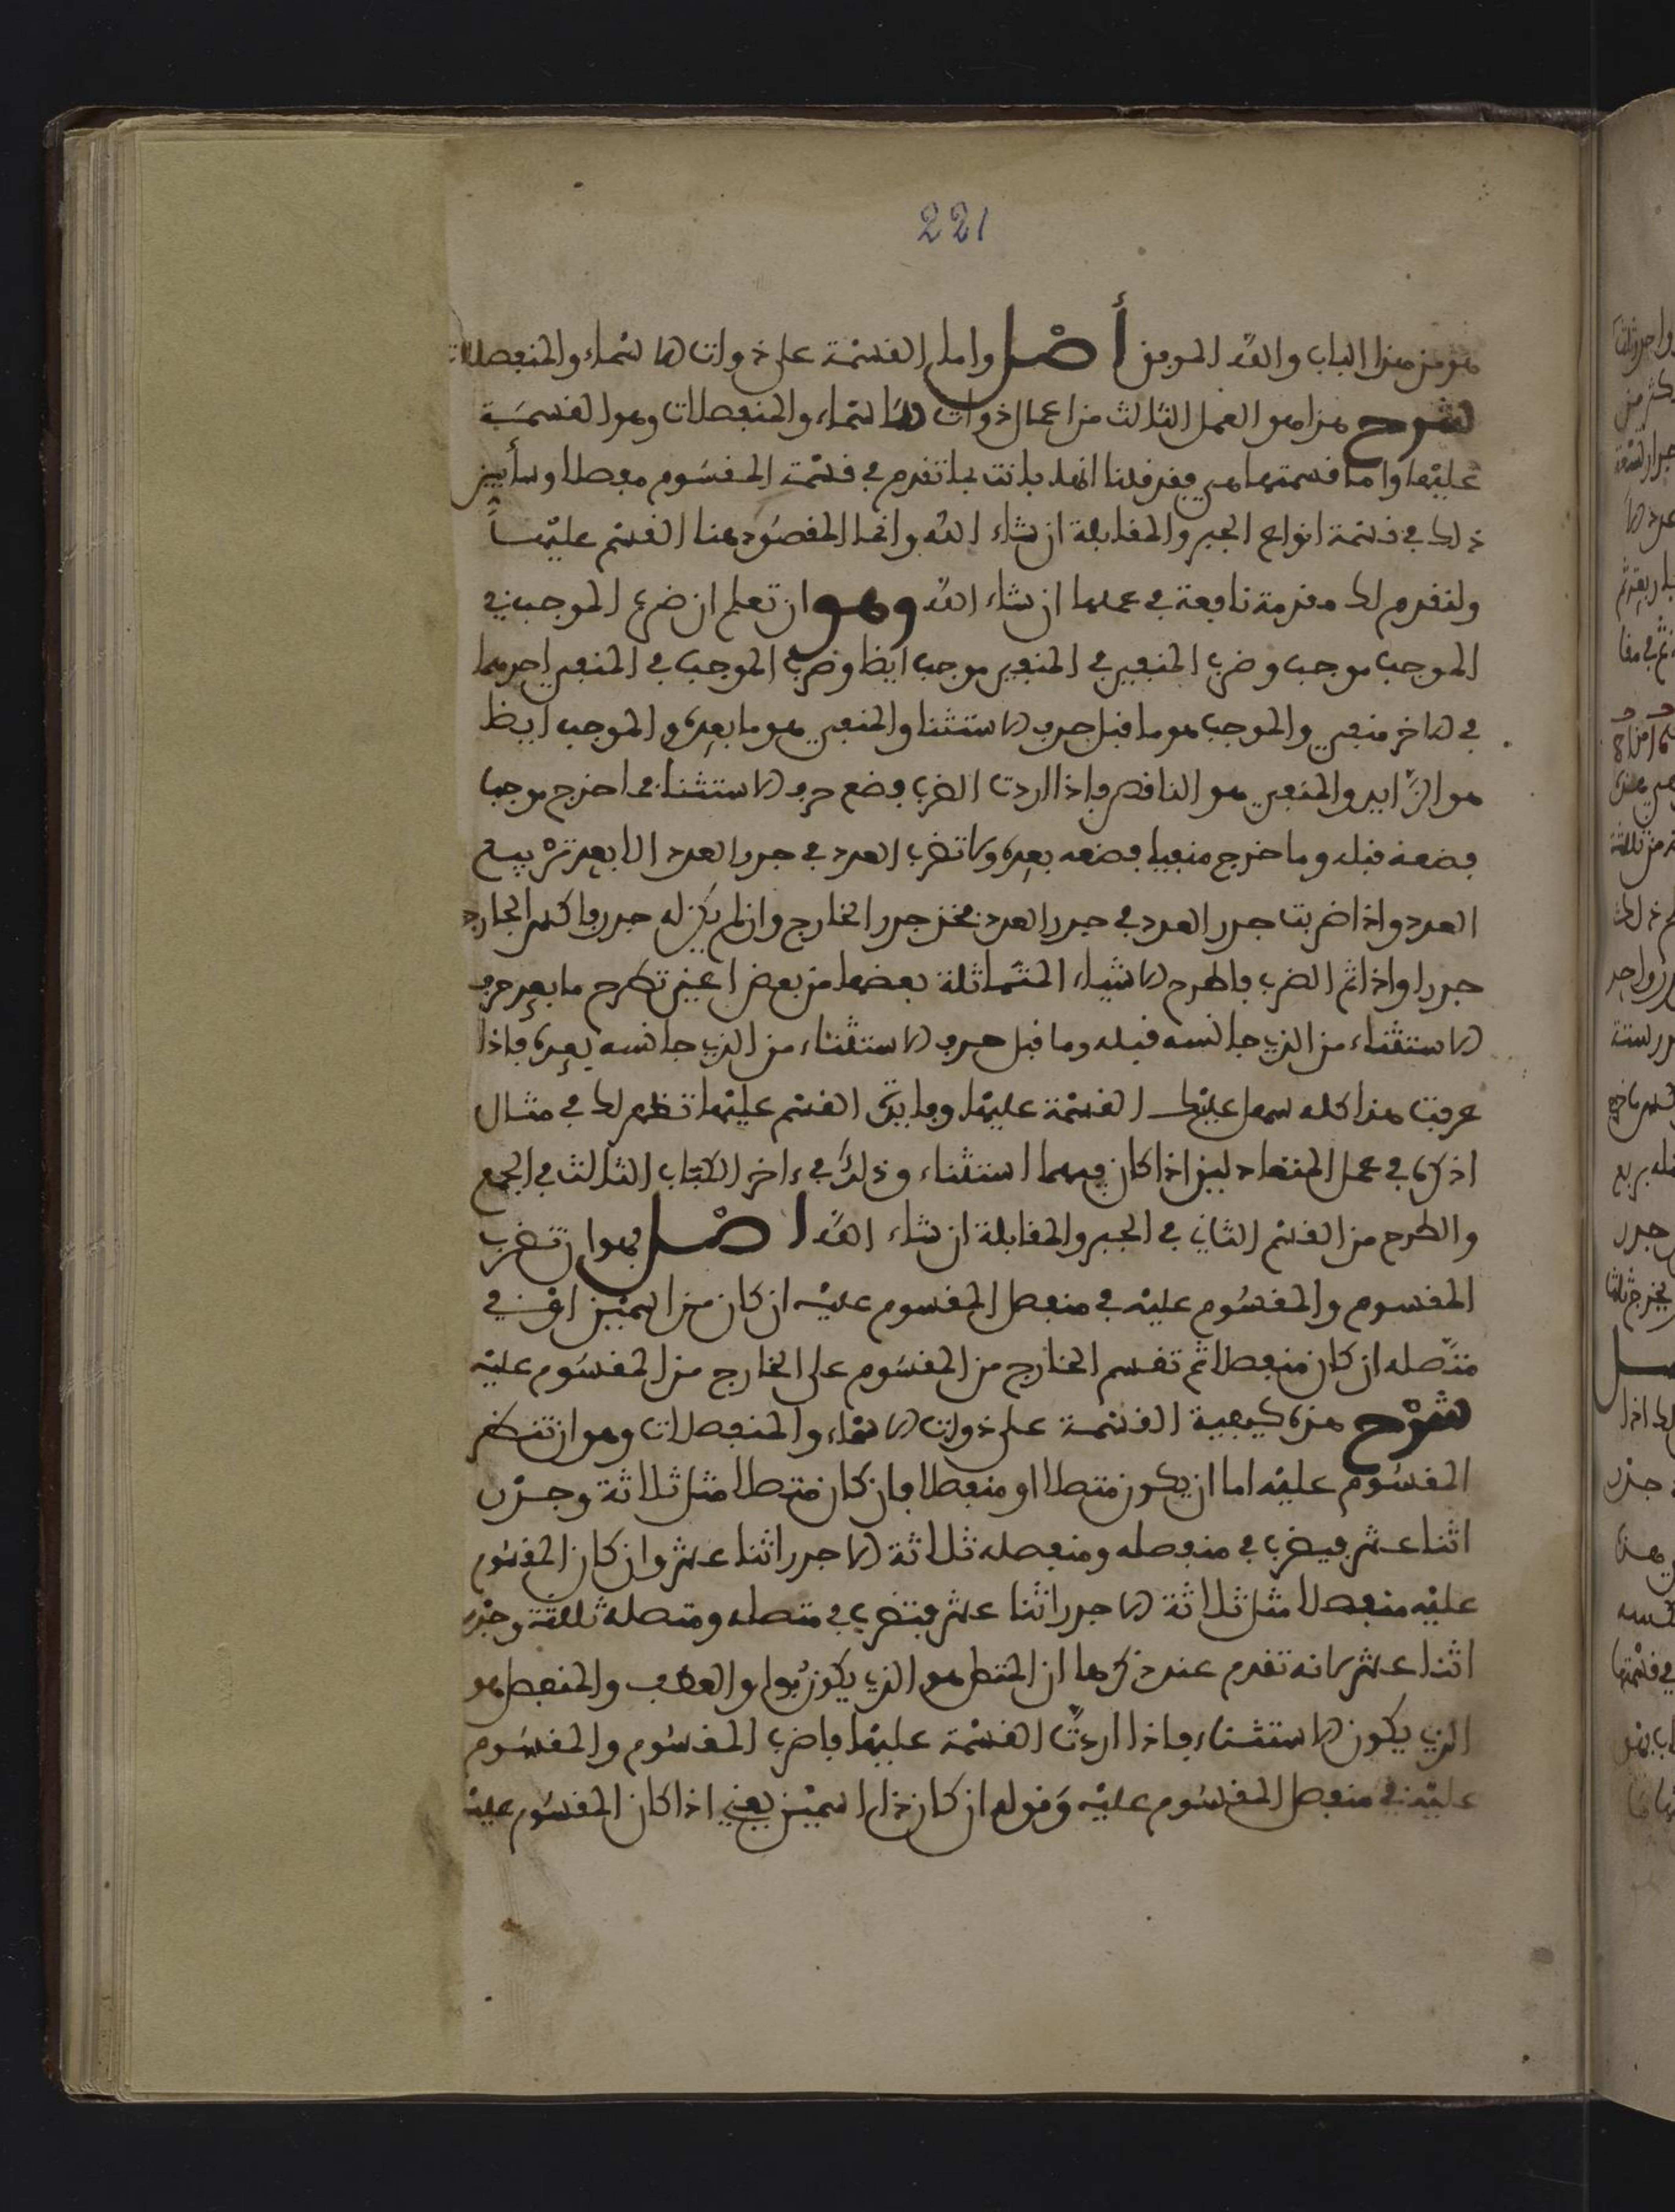 221
هو من هذا الباب والله الموفق أصل واما القسمة على ذوات الاسماء والمنفصلات
شرح هذا هو العمل الثالث من اعمال ذوات الاسماء والمنفصلات وهو القسمة
عليها واما قسمتها هي فقد قلنا انها بانت بما تقدم في قسمة المقسوم مفصلا وسأبين
ذلك في قسمة انواع الجبر والمقابلة ان شاء الله وانما المقصود هنا القسم عليها
ولنقدم لك مقدمة نافعة في عملها ان شاء الله وهو ان تعلم ان ضرب الموجب في
الموجب موجب وضرب المنفي في المنفي موجب ايظا وضرب الموجب في المنفي احدهما
في الاخر منفي والموجب هو ما قبل حرف الاستثنا والمنفي هو ما بعده والموجب ايظا
هو الزايد والمنفي هو الناقص فاذا اردت الضرب فضع حرف الاستثنا فما خرج موجبا
فضعه قبله وما خرج منفيا فضعه بعده ولا تضرب العدد في جدر العدد الا بعد تربيع
العدد واذا ضربت جدر العدد في جدر العدد فخذ جدر الخارج وان لم يكن له جدر
جدرا واذا تم الضرب فاطرح الاشياء المتماثلة بعضها من بعض اعني تطرح ما بعد حرف
الاستثناء من الذي جانسه قبله وما قبل حرف الاستثناء من الذي جانسه بعده فاذا
عرفت هذا كله سهل عليك القسمة عليها وفايدة القسم عليها تظهر لك في مثال
اذكره في عمل المتعادلين اذا كان فيهما استثناء وذلك في ءاخر الكتاب الثالث في الجمع
والطرح من القسم الثاني في الجبر والمقابلة ان شاء الله اصل فهو ان تضرب
المقسوم والمقسوم عليه في منفصل المقسوم عليه ان كان من اسمين او في
متصله ان كان منفصلا ثم تقسم الخارج من المقسوم على الخارج من المقسوم عليه
شرح هذه كيفية القسمة على ذوات الاسماء والمنفصلات وهو ان تنظر
المقسوم عليه اما ان يكون متصلا او منفصلا فان كان متصلا مثل ثلاثة وجدر
اثنا عشر فيضرب في منفصله ومنفصله ثلاثة الا جدر اثنا عشر وان كان المقسوم
عليه منفصلا مثل ثلاثة الا جدر اثنا عشر فتضرب في متصله ومتصله ثلاثة وجدر
اثنا عشر لانه تقدم عند ذكرها ان المتصل هو الذي يكون بواو العطف والمنفصل هو
الذي يكون بالاستثناء فاذا اردت القسمة عليها فاضرب المقسوم والمقسوم
عليه في منفصل المقسوم عليه وقوله ان كان ذا اسمين يعني اذا كان المقسوم عليه